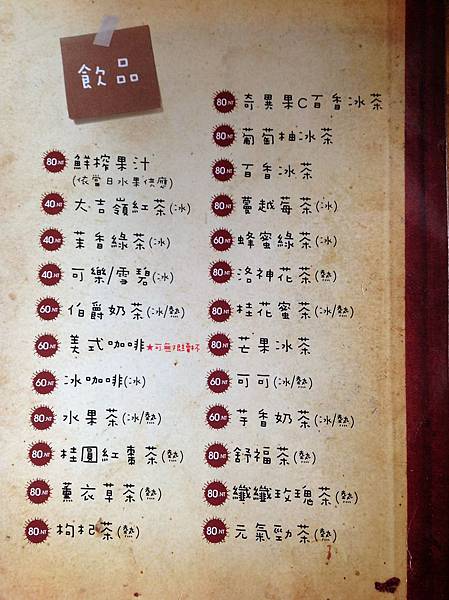 飲品
80NT 鮮榨果汁
(依當日水果供應)
40NT 大吉嶺紅茶(冰)
40NT 茉香綠茶(冰)
40NT 可樂/雪碧(冰)
60NT 伯爵奶茶(冰/熱)
60NT 美式咖啡★可無限暢杯
60NT 冰咖啡(冰)
80NT 水果茶(冰/熱)
80NT 桂圓紅棗茶(熱)
80NT 薰衣草茶(熱)
80NT 枸杞茶(熱)
80NT 奇異果C百香冰茶
80NT 葡萄柚冰茶
80NT 百香冰茶
80NT 蔓越莓茶(冰)
60NT 蜂蜜綠茶(冰)
80NT 洛神花茶(熱)
80NT 桂花蜜茶(冰/熱)
80NT 芒果冰茶
60NT 可可(冰/熱)
60NT 芋香奶茶(冰/熱)
80NT 舒福茶(熱)
80NT 纖纖玫瑰茶(熱)
80NT 元氣勁茶(熱)